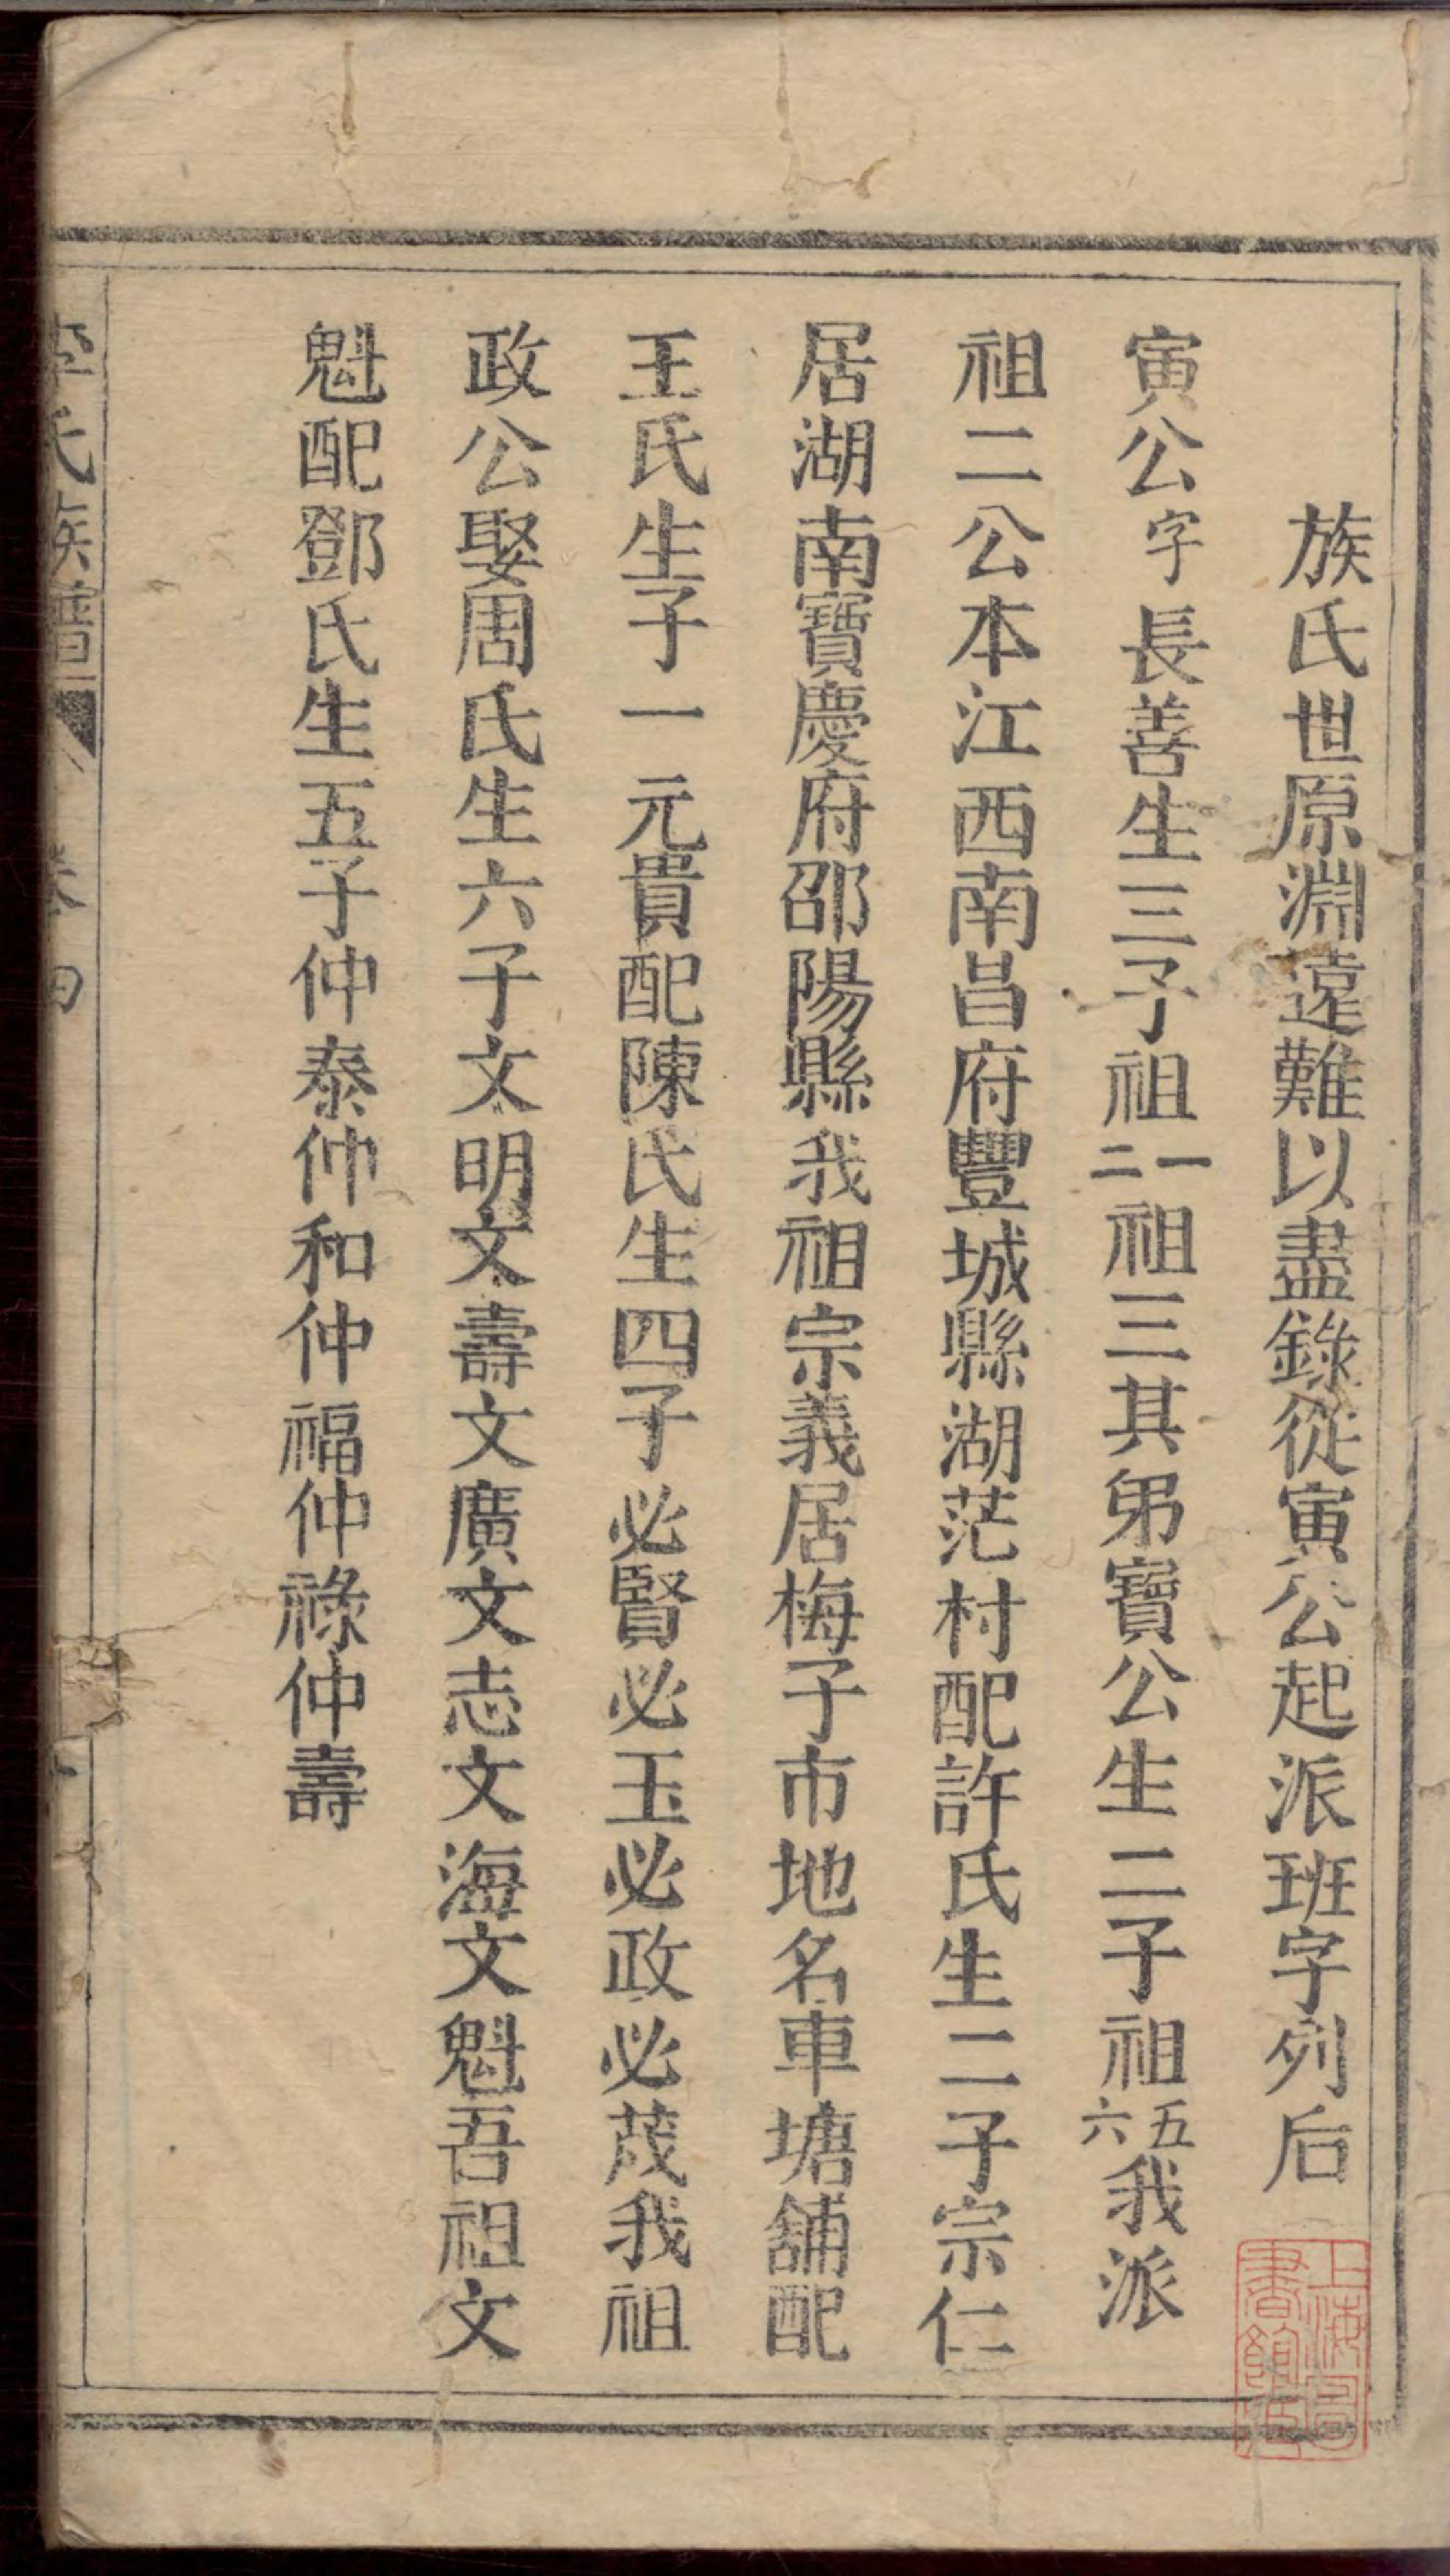 族氏世原淵遠難以盡錄從寅公起派班字列后
寅公字長善生三子祖一二祖三其弟寶公生二子祖五六我派
祖二公本江西南昌府豐城縣湖茫村配許氏生二子宗仁
居湖南寶慶府邵陽縣我祖宗義居梅子市地名車塘舖配
王氏生子一元貴配陳氏生四子必賢必玉必政必茂我祖
政公娶周氏生六子文明文壽文廣文志文海文魁吾祖文
魁配鄧氏生五子仲泰仲和仲福仲祿仲壽
李氏族譜
卷四
上海圖書館藏